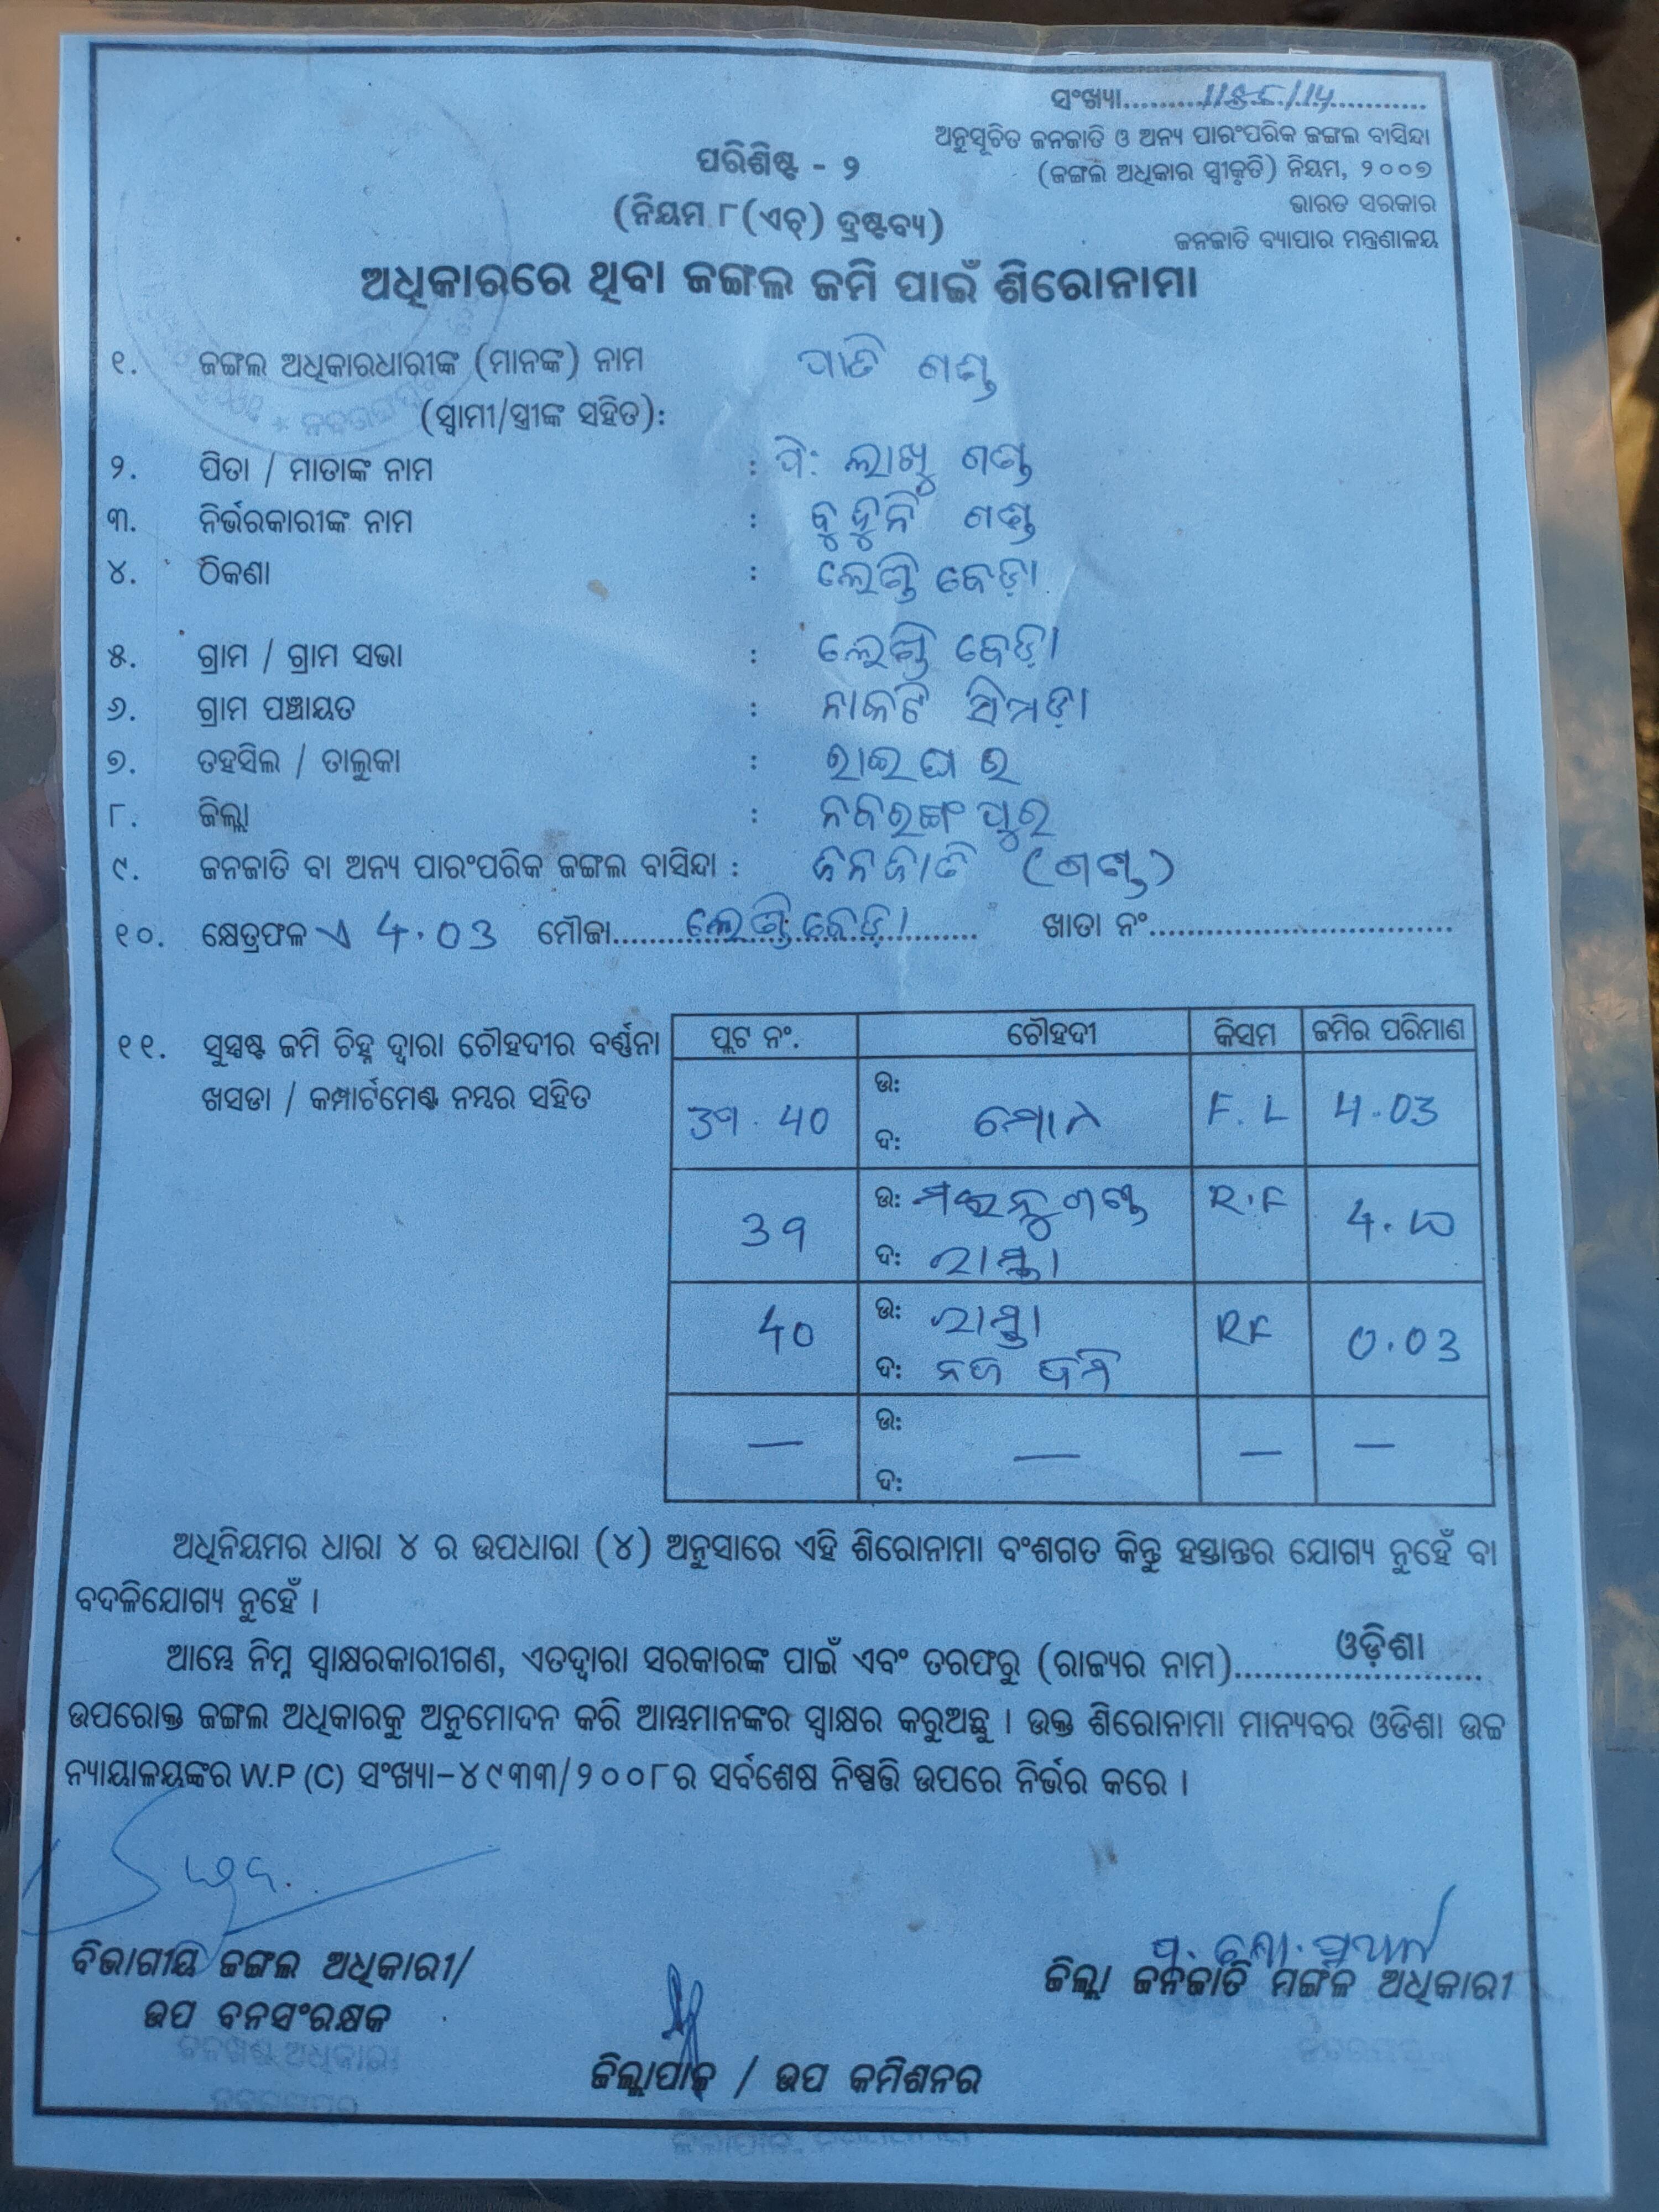 ସଂଖ୍ୟା
ଅନୁସୂଚିତ ଜନଜାତି ଓ ଅନ୍ୟ ପାରଂପରିକ ଜଙ୍ଗଲ ବାସିନ୍ଦା
(ଜଙ୍ଗଲ ଅଧିକାର ସ୍ୱୀକୃତି) ନିୟମ, ୨୦୦୭
ଭାରତ ସରକାର
ଜନଜାତି ବ୍ୟାପାର ମନ୍ତ୍ରଣାଳୟ
ପରିଶିଷ୍ଟ - ୨
(ନିୟମ ୮(ଏଚ୍) ଦ୍ରଷ୍ଟବ୍ୟ)
ଅଧିକାରରେ ଥିବା ଜଙ୍ଗଲ ଜମି ପାଇଁ ଶିରୋନାମା
୧. ଜଙ୍ଗଲ ଅଧିକାରଧାରୀଙ୍କ (ମାନଙ୍କ) ନାମ ଗଣ୍ଡ
(ସ୍ୱାମୀ/ସ୍ତ୍ରୀଙ୍କ ସହିତ):
୨. ପିତା / ମାତାଙ୍କ ନାମ : ପି: ଲାଖୁ ଗଣ୍ଡ
୩. ନିର୍ଭରକାରୀଙ୍କ ନାମ : ବୁଦୁନି ଗଣ୍ଡ
୪. ଠିକଣା : ଲେଣ୍ଡି ବେଡ଼ା
୫. ଗ୍ରାମ / ଗ୍ରାମ ସଭା : ଲେଣ୍ଡି ବେଡ଼ା
୬. ଗ୍ରାମ ପଞ୍ଚାୟତ : ନାକଟି ସିମଡ଼ା
୭. ତହସିଲ / ତାଲୁକା : ରାଇଘର
୮. ଜିଲ୍ଲା : ନବରଙ୍ଗପୁର
୯. ଜନଜାତି ବା ଅନ୍ୟ ପାରଂପରିକ ଜଙ୍ଗଲ ବାସିନ୍ଦା : ଜନଜାତି (ଗଣ୍ଡ)
୧୦. କ୍ଷେତ୍ରଫଳ ଏ 4.03 ମୌଜା ଲେଣ୍ଡି ବେଡ଼ା ଖାତା ନଂ
୧୧. ସୁସ୍ପଷ୍ଟ ଜମି ଚିହ୍ନ ଦ୍ୱାରା ଚୌହଦୀର ବର୍ଣ୍ଣନା
ଖସଡା / କମ୍ପାର୍ଟମେଣ୍ଟ ନମ୍ବର ସହିତ
ପ୍ଲଟ ନଂ. ଚୌହଦୀ କିସମ ଜମିର ପରିମାଣ
ଉ:
40 F.L 4.03
ଦ:
ଉ: ଗଣ୍ଡ R.F
ଦ: ରାସ୍ତା
40 ଉ: ରାସ୍ତା RF 0.03
ଦ:
ଉ:
— — — —
ଦ:
ଅଧିନିୟମର ଧାରା ୪ ର ଉପଧାରା (୪) ଅନୁସାରେ ଏହି ଶିରୋନାମା ବଂଶଗତ କିନ୍ତୁ ହସ୍ତାନ୍ତର ଯୋଗ୍ୟ ନୁହେଁ ବା
ବଦଳିଯୋଗ୍ୟ ନୁହେଁ ।
ଆମ୍ଭେ ନିମ୍ନ ସ୍ୱାକ୍ଷରକାରୀଗଣ, ଏତଦ୍ୱାରା ସରକାରଙ୍କ ପାଇଁ ଏବଂ ତରଫରୁ (ରାଜ୍ୟର ନାମ) ଓଡ଼ିଶା
ଉପରୋକ୍ତ ଜଙ୍ଗଲ ଅଧିକାରକୁ ଅନୁମୋଦନ କରି ଆମ୍ଭମାନଙ୍କର ସ୍ୱାକ୍ଷର କରୁଅଛୁ । ଉକ୍ତ ଶିରୋନାମା ମାନ୍ୟବର ଓଡିଶା ଉଚ୍ଚ
ନ୍ୟାୟାଳୟଙ୍କର W.P (C) ସଂଖ୍ୟା-୪୯୩୩/୨୦୦୮ର ସର୍ବଶେଷ ନିଷ୍ପତ୍ତି ଉପରେ ନିର୍ଭର କରେ ।
ବିଭାଗୀୟ ଜଙ୍ଗଲ ଅଧିକାରୀ/
ଉପ ବନସଂରକ୍ଷକ
ଜିଲ୍ଲା ଜନଜାତି ମଙ୍ଗଳ ଅଧିକାରୀ
ଜିଲ୍ଲାପାଳ / ଉପ କମିଶନର